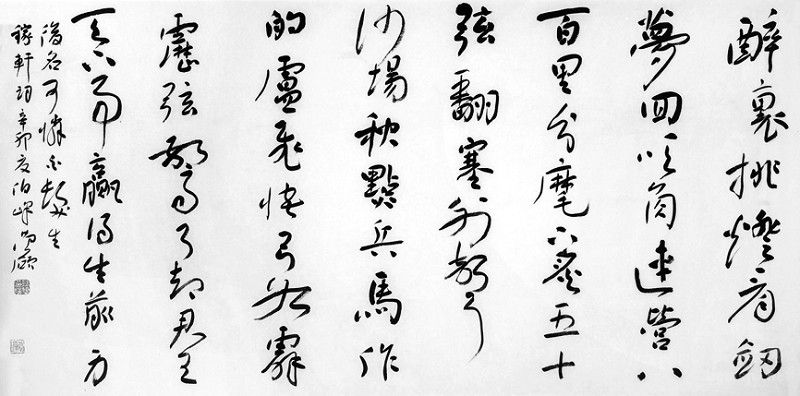 醉裏挑燈看劍
夢回吹角連營八
百里分麾下炙五十
弦翻塞外聲
沙場秋點兵馬作
的盧飛快弓如霹
靂弦驚了卻君王
天下事贏得生前身
後名可憐白髮生
稼軒詞辛卯夏